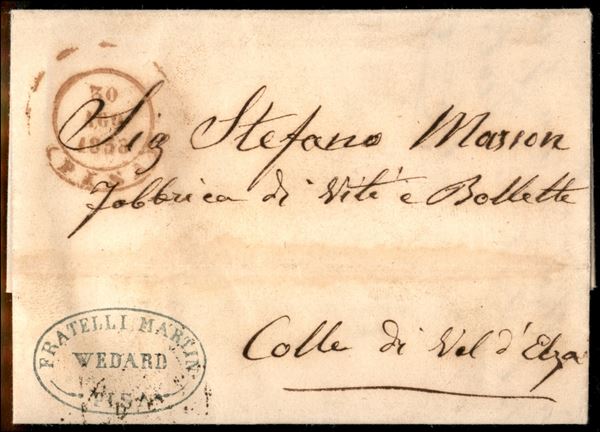 30
AGO
1853
PISA
Sig Stefano Masson
Fabbrica di Vite e Bollette
Colle di Val d'Elza
FRATELLI MARTIN
WEDARD
PISA